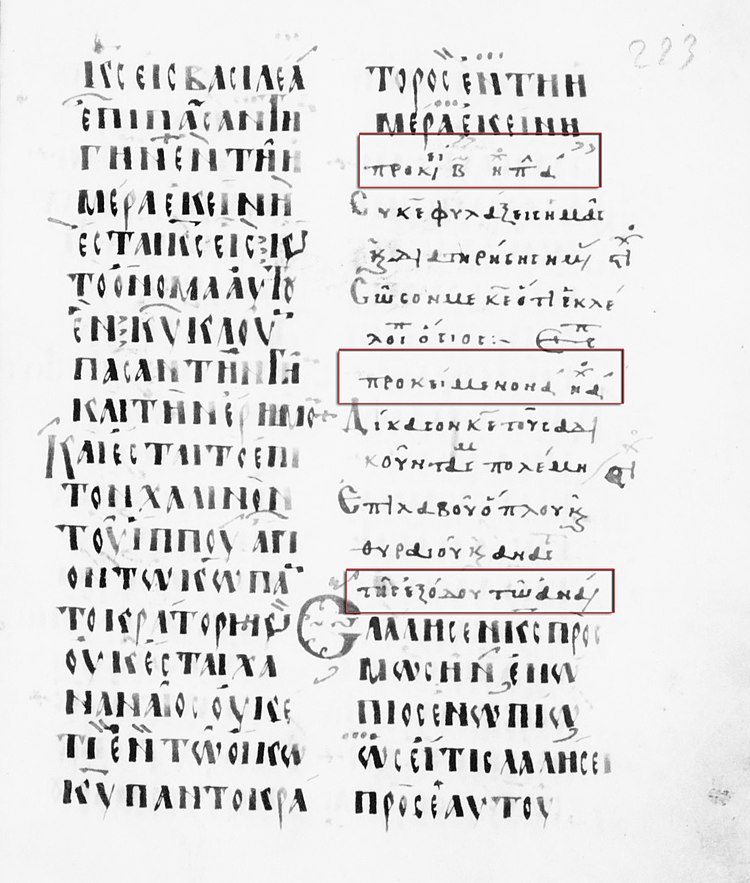 ΙΚΣΕΙΣΒΑΣΙΛΕΑ
ἘΠΙΠΑΣΑΝΤΗ
ΓΗΝἘΝΤΗΗ
ΜΕΡΑΕΚΕΙΝΗ
ἘΣΤΑΙΚΣΕΙΣϗ
ΤΟΟΝΟΜΑΑΥΤΟΥ
ἘΝΚΥΚΛΟΥ
ΠΑΣΑΝΤΗΝΓΗ
ΚΑΙΤΗΝΕΡΗΜΟ
ΚΑΙἘΣΤΑΙΤΟΕΠΙ
ΤΟΝΧΑΛΙΝΟΝ
ΤΟΥΙΠΠΟΥΑΓΙ
ΟΝΤΩΚΩΠΑ
ΤΟΚΡΑΤΟΡΙϗ
ΟΥΚΕΣΤΑΙΧΑ
ΝΑΝΑΙΟΣΟΥΚΕ
ΤΙἘΝΤΩΟΙΚΩ
ΚΥΠΑΝΤΟΚΡΑ
ΤΟΡΟΣἘΝΤΗΗ
ΜΕΡΑΕΚΕΙΝΗ
προκι β ηχ πλ α
Συκεφυλαξεισημασ
ϗδιατηρησησημ
Σωσονμεκεοτιεκλε
λοιπ οσιος
προκειμενον ηχ α
Δικασονκετουσαδι
κουντασ πολεμη
Επιλαβουοπλουϗ
θυρεουϗανασ
τησεξοδου τωανα
ΕΛΑΛΗΣΕΝΚΣΠΡΟΣ
ΜΩΣΗΝἘΝΩ
ΠΙΟΣΕΝΩΠΙΩ
ΩΣΕΙΤΙΣΛΑΛΗΣΕΙ
ΠΡΟΣΕΑΥΤΟΥ